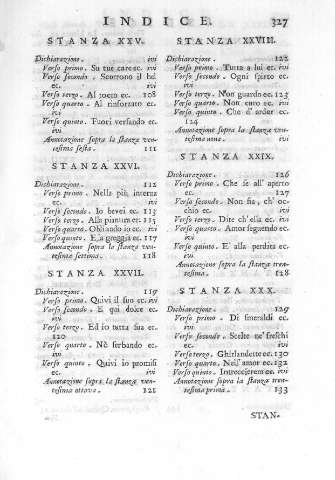 INDICE. 327
STANZA XXV.
Dichiarazione. ivi
Verso primo. Su tue care ec. ivi
Verso secondo. Scorrono il bel
ec. ivi
Verso terzo. Al tocco ec. 108
Verso quarto. Al rinforzato ec.
ivi
Verso quinto. Fuori versando ec.
ivi
Annotazione sopra la stanza ven-
tesima sesta. 111
STANZA XXVI.
Dichiarazione. 112
Verso primo. Nella più interna
ec. ivi
Verso secondo. Io bevei ec. 113
Verso terzo. Alla pianura ec. 115
Verso quarto. Obliando io ec. ivi
Verso quinto. E la greggia ec. 117
Annotazione sopra la stanza ven-
tesima settima. 118
STANZA XXVII.
Dichiarazione. 119
Verso primo. Quivi il suo ec. ivi
Verso secondo. E qui dolce ec.
ivi
Verso terzo. Ed io tutta sua ec.
120
Verso quarto. Nè serbando ec.
ivi
Verso quinto. Quivi io promisi
ec. ivi
Annotazione sopra la stanza ven-
tesima ottava. 121
STANZA XXVIII.
Dichiarazione. 122
Verso primo. Tutta a lui ec. ivi
Verso secondo. Ogni spirto ec.
ivi
Verso terzo. Non guardo ec. 123
Verso quarto. Non curo ec. ivi
Verso quinto. Che d'arder ec.
124
Annotazione sopra la stanza ven-
tesima nona. ivi
STANZA XXIX.
Dichiarazione. 126
Verso primo. Che se all' aperto
ec. 127
Verso secondo. Non fia, ch' oc-
chio ec. ivi
Verso terzo. Dite ch'ella ec. ivi
Verso quarto. Amor seguendo ec.
ivi
Verso quinto. E alla perdita ec.
ivi
Annotazione sopra la stanza tren-
tesima. 128
STANZA XXX.
Dichiarazione. 129
Verso primo. Di smeraldi ec.
ivi
Verso secondo. Scelte ne' freschi
ec. ivi
Verso terzo. Ghirlandette ec. 130
Verso quarto. Nell' amor ec. 132
Verso quinto. Intrecciere m ec. ivi
Annotazione sopra la stanza tren-
tesima prima. 133
STAN-